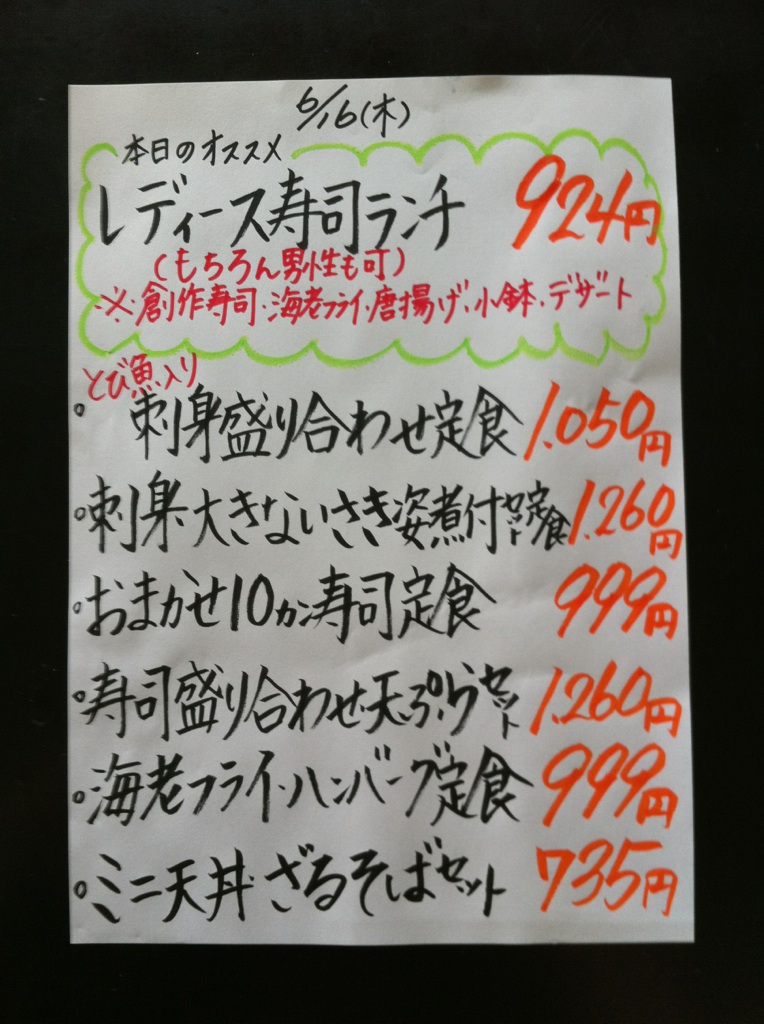 6/16(木)
本日のオススメ
レディース寿司ランチ 924円
(もちろん男性も可)
※創作寿司・海老フライ・唐揚げ・小鉢・デザート
とび魚入り
・刺身盛り合わせ定食 1,050円
・刺身・大きないさき姿煮付セット定食 1,260円
・おまかせ10カン寿司定食 999円
・寿司盛り合わせ天ぷらセット 1,260円
・海老フライ・ハンバーグ定食 999円
・ミニ天丼・ざるそばセット 735円